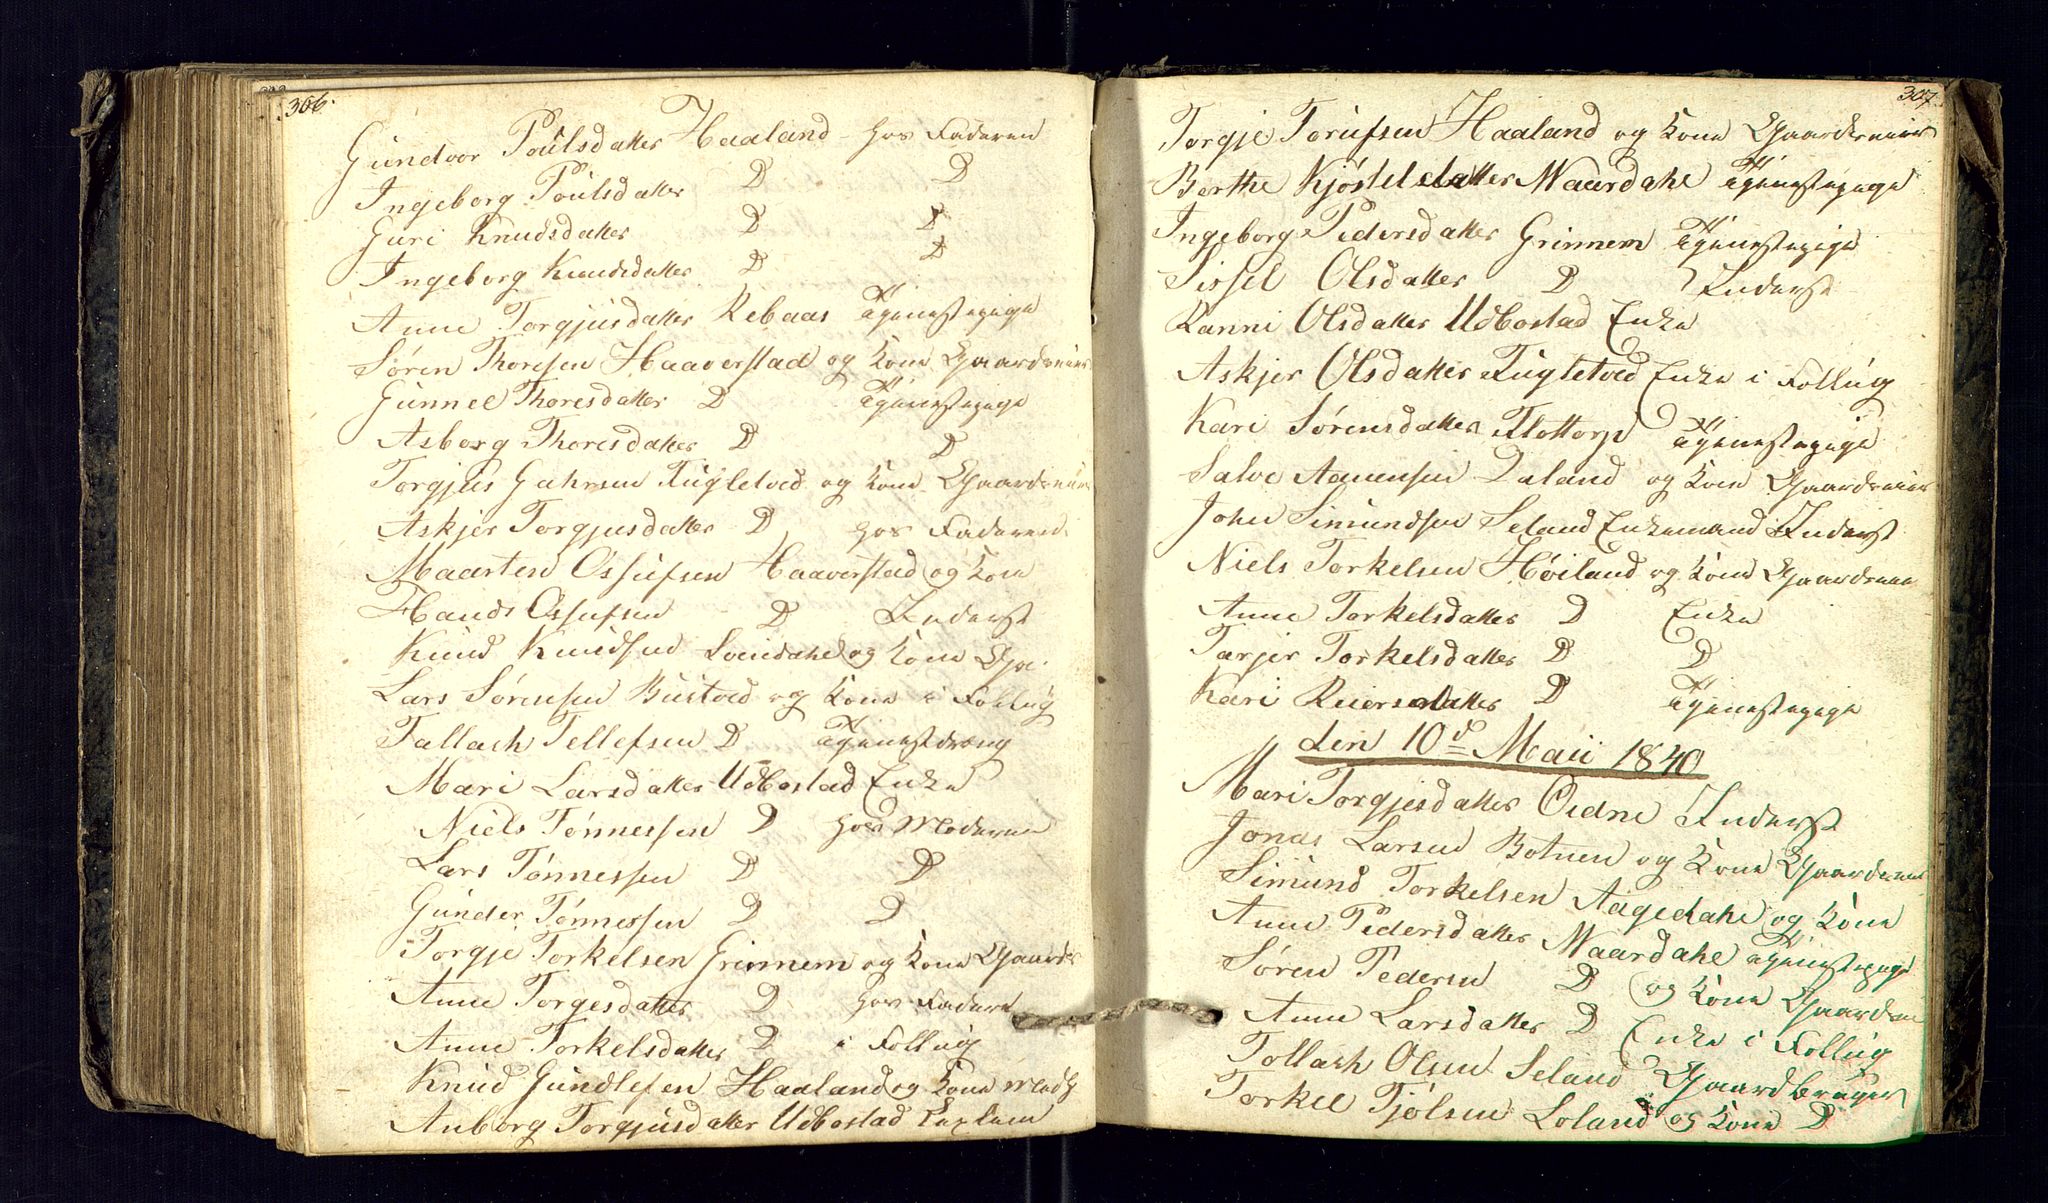 306.
Gundvor Poulsdatter Haaland hos Faderen
Ingeborg Poulsdatter D D
Guri Knudsdatter D D
Ingeborg Knudsdatter D D
Anne Torgjusdatter Rebaas Tjenestepige
Søren Thoresen Haaverstad og Kone Gaardbruger
Gunnel Thoresdatter D Tjenestepige
Asborg Thoresdatter D D
Torgjus Fugletved og Kone
Askjer Torgjusdatter D hos Faderen
Maarten Ossufsen Haaverstad og Kone
Hans Ossufsen D Inderst
Knud Knudsen Sveindahl og Kone
Lars Sørensen Bustved og Kone i Follug
Tallach Tellefsen D Tjenestdreng
Mari Larsdatter Udbostad Enke
Niels Tønnessen D hos Moderen
Lars Tønnessen D D
Gunder Tønnessen D D
Torgje Torkelsen Grinnem og Kone
Anne Torgesdatter D hos Faderen
Anne Torkelsdatter D i Follug
Knud Gundlefsen Haaland og Kone
Anborg Torgjusdatter Udbostad
307.
Torgje Torufsen Haaland og Kone
Berthe Kjøstelsdatter Maardahl Tjenestepige
Ingeborg Pedersdatter Grinnem Tjenestepige
Sissel Olsdatter D Inderst
Ranni Olsdatter Udbostad Enke
Askjer Olsdatter Fugletved Enke i Follug
Kari Sørensdatter Flottorp Tjenestepige
Salve Aanensen Daland og Kone
John Simundsen Seland Enkemand Inderst
Niels Torkelsen Høiland og Kone
Anne Torkelsdatter D Enke
Tarjer Torkelsdatter D D
Kari Reiersdatter D Tjenestepige
den 10d Maii 1840
Mari Torgjesdatter Oidne Inderst
Jonas Larsen Botnen og Kone
Simund Torkelsen Aagedahl og Kone
Anne Pedersdatter Maardahl Tjenestepige
Søren Pedersen D og Kone
Anne Larsdatter D Enke i Follug
Tollach Olsen Seland Gaardbruger
Torkel Tjølsen Loland og Kone D